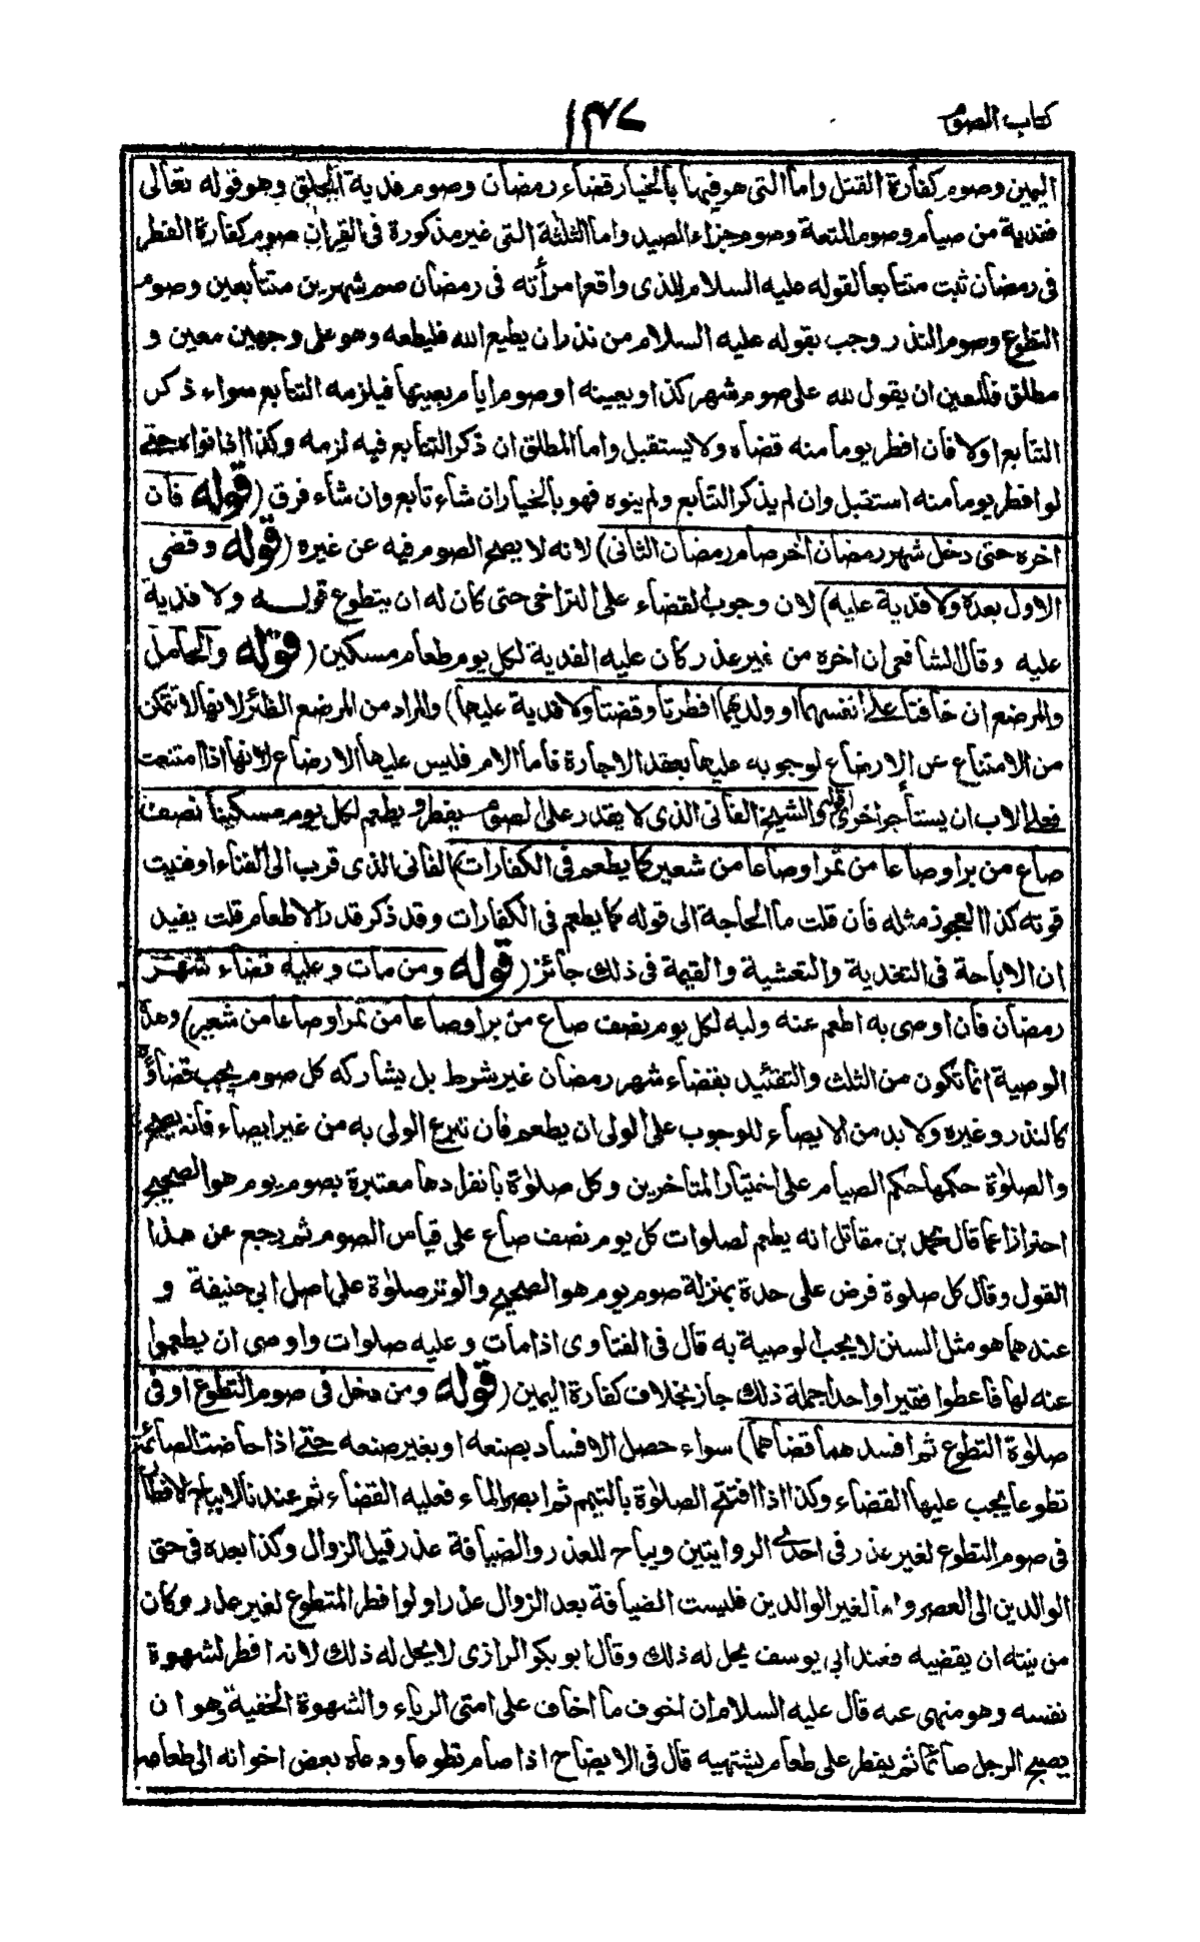 كتاب الصوم
١٣٧
اليمين وصوم كفارة القتل واما التى هو فيها بالخيار قضاء رمضان وصوم فدية الحلق وهو قوله تعالى
ففدية من صيام وصوم المتعة وصوم جزاء الصيد واما الثلثة التى غير مذكورة فى القران صوم كفارة الفطر
فى رمضان ثبت متتابعا لقوله عليه السلام للذى واقع امرأته فى رمضان صم شهرين متتابعين وصوم
التطوع وصوم النذر وجب بقوله عليه السلام من نذر ان يطيع الله فليطعه وهو على وجهين معين و
مطلق فالمعين ان يقول لله على صوم شهر كذا وبعينه او صوم ايام بعينها فيلزمه التتابع سواء ذكر
التتابع اولا فان افطر يوما منه قضاه ولا يستقبل واما المطلق ان ذكر التتابع فيه لزمه وكذا اذا نواه حتى
لو افطر يوما منه استقبل وان لم يذكر التتابع ولم ينوه فهو بالخيار ان شاء تابع وان شاء فرق (قوله فان
اخره حتى دخل شهر رمضان اخر صام رمضان الثانى) لانه لا يصح الصوم فيه عن غيره (قوله وقضى
الاول بعده ولا فدية عليه) لان وجوب القضاء على التراخى حتى كان له ان يتطوع قوله ولا فدية
عليه وقال الشافعى ان اخره من غير عذر كان عليه الفدية لكل يوم طعام مسكين (قوله والحامل
والمرضع ان خافتا على انفسهما او ولديهما افطرتا وقضتا ولا فدية عليهما) والمراد من المرضع الظئر لانها لا تتمكن
من الامتناع عن الارضاع لوجوبه عليها بعقد الاجارة فاما الام فليس عليها الارضاع لانها اذا امتنعت
فعلى الاب ان يستأجر اخرى قوله والشيخ الفانى الذى لا يقدر على الصوم يفطر ويطعم لكل يوم مسكينا نصف
صاع من بر او صاعا من تمر او صاعا من شعير كما يطعم فى الكفارات) الفانى الذى قرب الى الفناء او فنيت
قوته كذا العجوز مثله فان قلت ما الحاجة الى قوله كما يطعم فى الكفارات وقد ذكر قدر الاطعام قلت يفيد
ان الاباحة فى التغدية والتعشية والقيمة فى ذلك جائز (قوله ومن مات وعليه قضاء شهر
رمضان فان اوصى به اطعم عنه وليه لكل يوم نصف صاع من بر او صاعا من تمر او صاعا من شعير) وهذه
الوصية انما تكون من الثلث والتقئيد بقضاء شهر رمضان غير شرط بل يشاركه كل صوم يجب قضاؤه
كالنذر وغيره ولا بد من الايصاء للوجوب على الولى ان يطعم فان تبرع الولى به من غير ايصاء فانه يصح
والصلوٰة حكمها حكم الصيام على اختيار المتاخرين وكل صلوٰة بانفرادها معتبرة بصوم يوم هو الصحيح
احترازا عما قال محمد بن مقاتل انه يطعم لصلوات كل يوم نصف صاع على قياس الصوم ثم رجع عن هذا
القول وقال كل صلوة فرض على حدة بمنزلة صوم يوم هو الصحيح والوتر صلوٰة على اصل ابى حنيفة و
عندهما هو مثل السنن لا يجب الوصية به قال فى الفتاوى اذا مات وعليه صلوات واوصى ان يطعموا
عنه لها فاعطوا فقيرا واحدا جملة ذلك جاز بخلاف كفارة اليمين (قوله ومن دخل فى صوم التطوع او فى
صلوٰة التطوع ثم افسدهما قضاهما) سواء حصل الافساد بصنعه او بغير صنعه حتى اذا حاضت الصائمة
تطوعا يجب عليها القضاء وكذا اذا افتتح الصلوٰة بالتيمم ثم ابصر الماء فعليه القضاء ثم عندنا لا يباح الافطار
فى صوم التطوع لغير عذر فى احدى الروايتين ويباح للعذر والضيافة عذر قبل الزوال وكذا بعده فى حق
الوالدين الى العصر واما لغير الوالدين فليست الضيافة بعد الزوال عذرا ولو افطر المتطوع لغير عذر وكان
من نيته ان يقضيه فعند ابى يوسف يحل له ذلك وقال ابو بكر الرازى لا يحل له ذلك لانه افطر لشهوة
نفسه وهو منهى عنه قال عليه السلام ان اخوف ما اخاف على امتى الرياء والشهوة الخفية وهو ان
يصبح الرجل صائما ثم يفطر على طعام يشتهيه قال فى الايضاح اذا صام تطوعا ودعاه بعض اخوانه الى طعامه